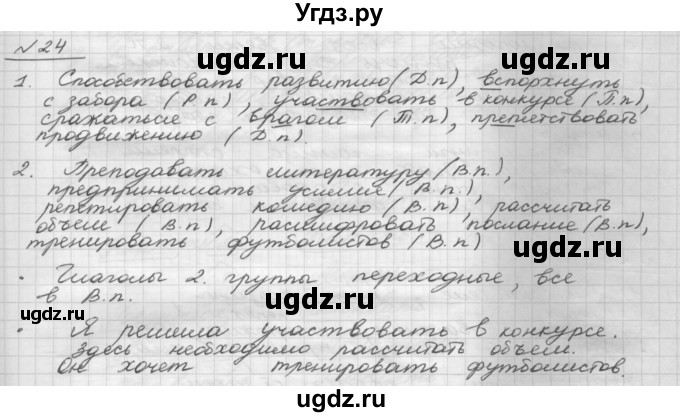 Угдз.ру
№24
1. Способствовать развитию (Д.п), вспорхнуть
с забора (Р.п), участвовать в конкурсе (П.п),
сражаться с врагом (Т.п), препятствовать
продвижению (Д.п).
2. Преподавать литературу (В.п.),
предпринимать усилие (В.п.),
репетировать комедию (В.п), рассчитать
объем (В.п), расшифровать послание (В.п),
тренировать футболистов (В.п)
· Глаголы 2. группы переходные, все
в В.п.
· Я решила участвовать в конкурсе.
Здесь необходимо рассчитать объем.
Он хочет тренировать футболистов.
ugdz.ru
ugdz.ru
ugdz.ru
ugdz.ru
ugdz.ru
ugdz.ru
ugdz.ru
ugdz.ru
ugdz.ru
ugdz.ru
ugdz.ru